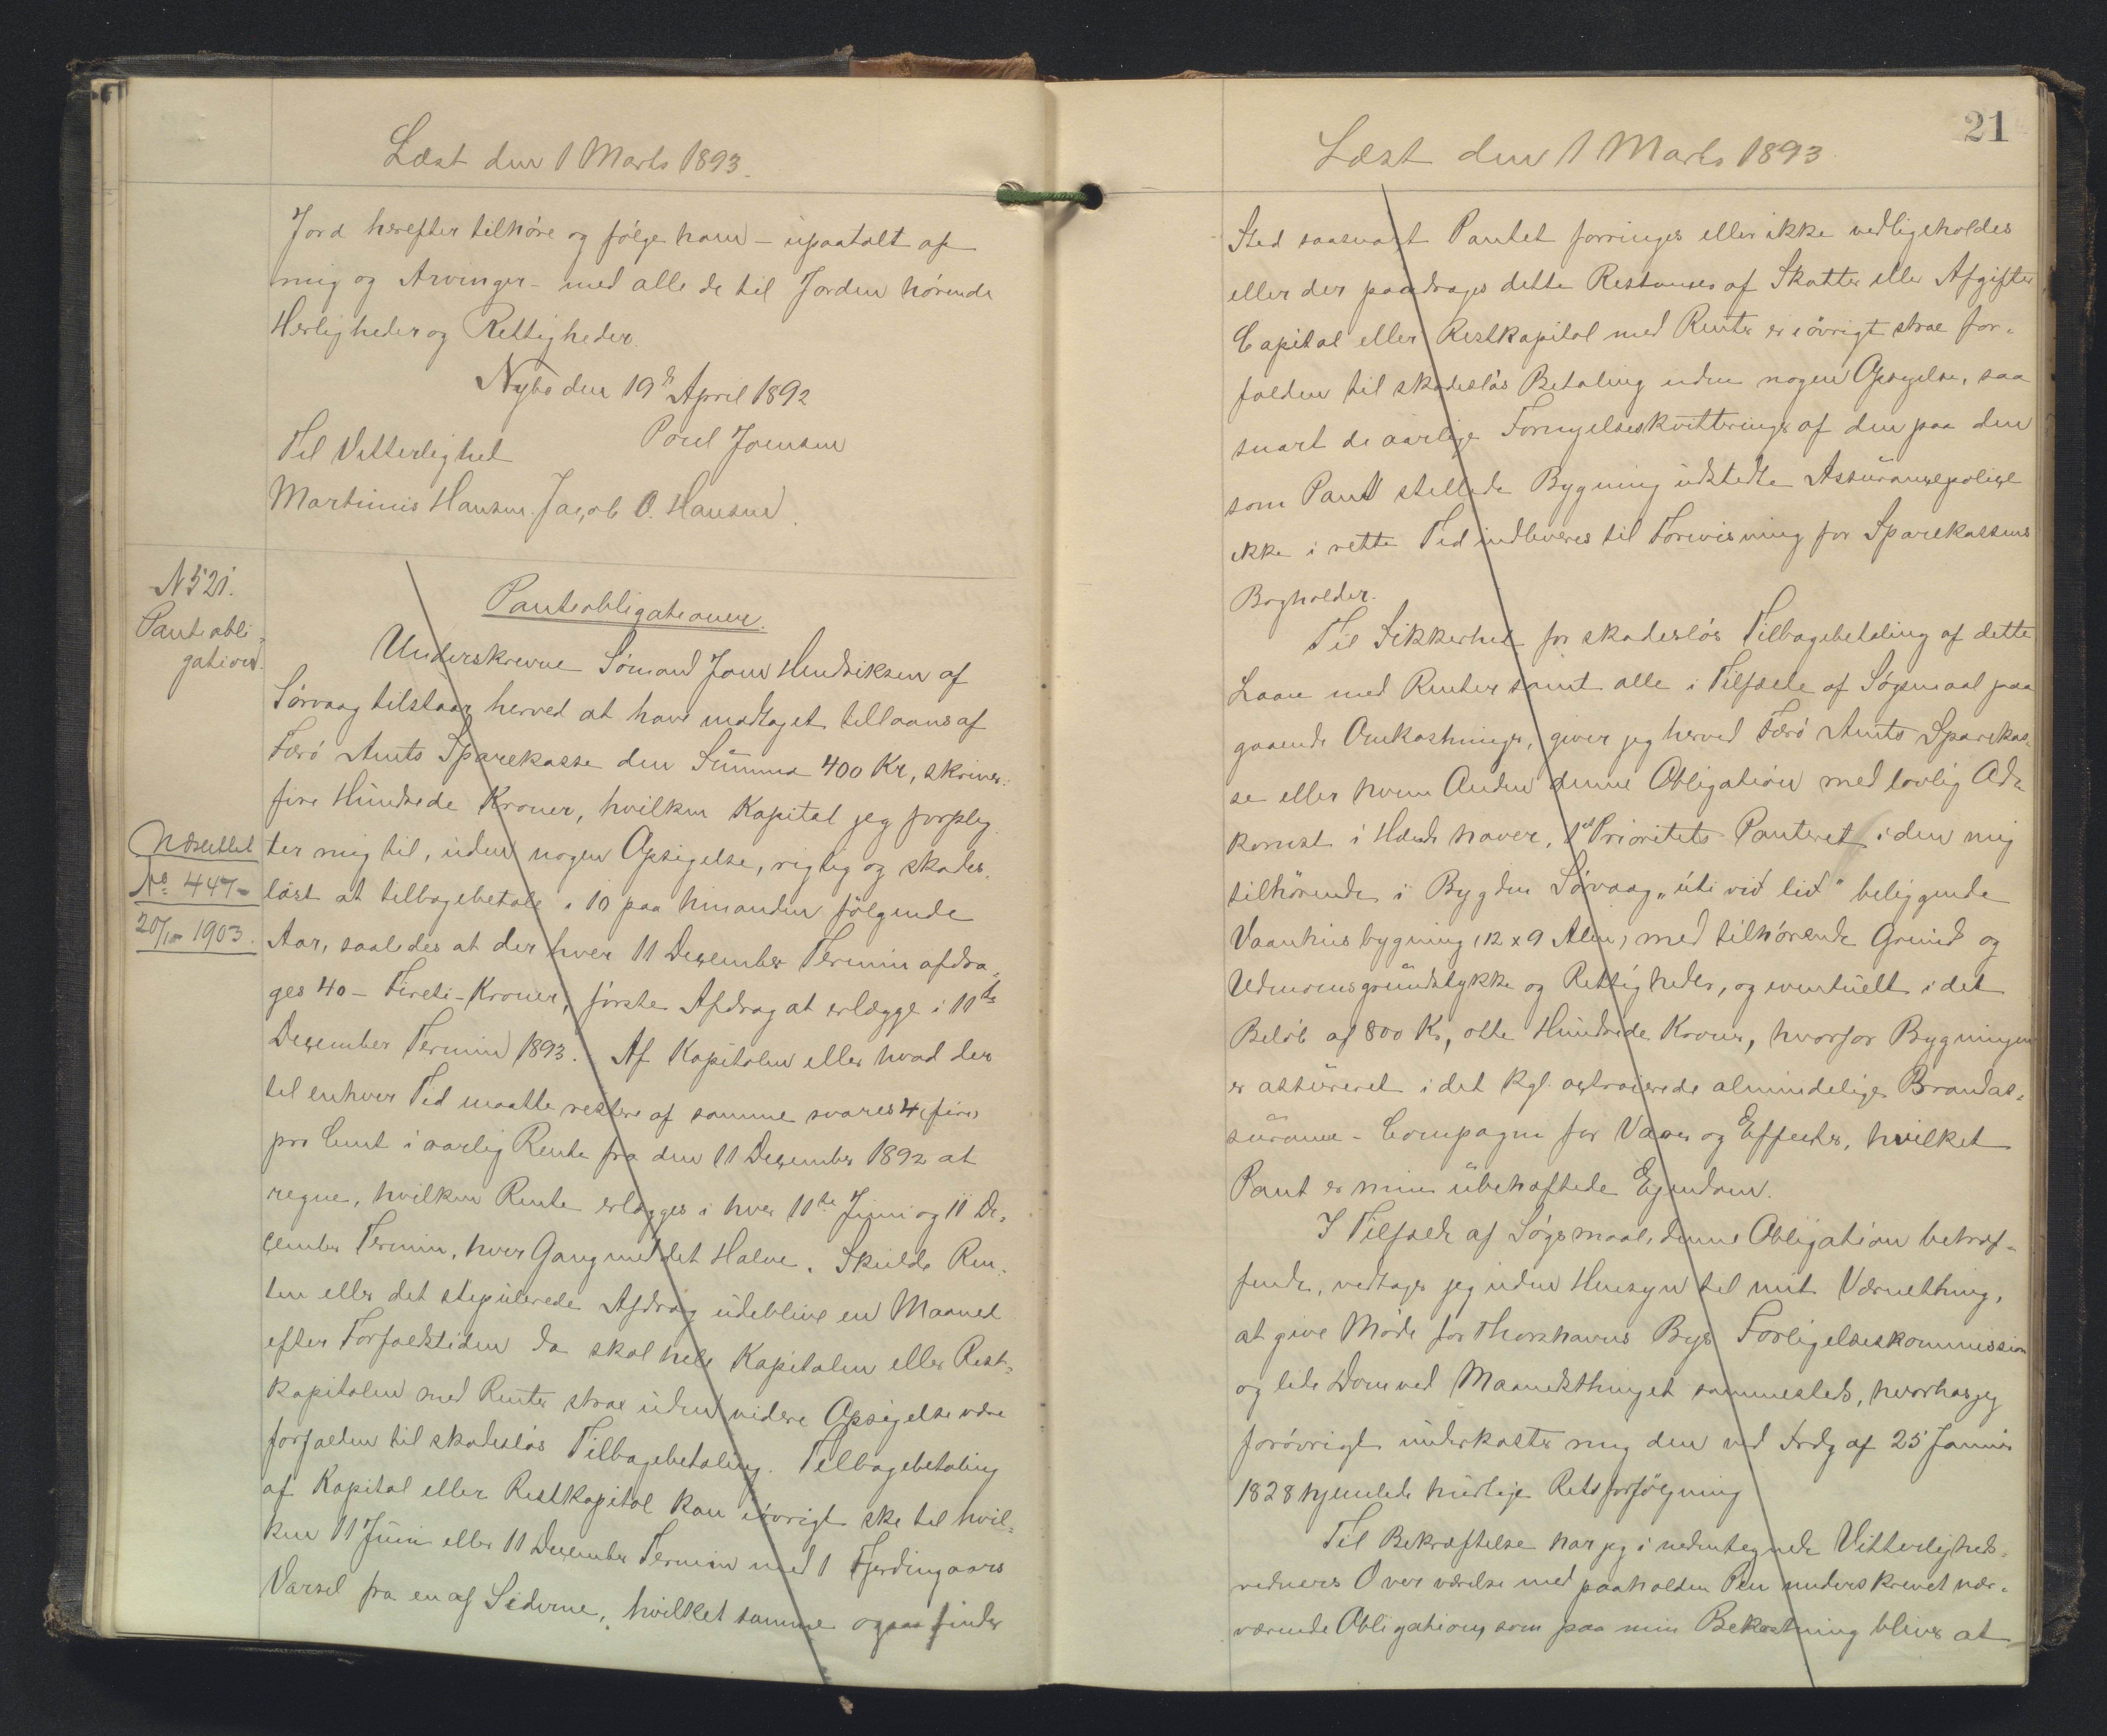 Læst den 1 Marts 1893.
Jord herefter tilhøre og følge ham – upaatalt af
mig og Arvinger – med alle de til Jorden hørende
Herligheder og Rettigheder.
Nybø den 19de April 1892
Poul Joensen
Til Vitterlighet
Martinus Hansen. Jacob O. Hansen.
N 521.
Panteobli-
gation.
Panteobligationer.
Underskrevne Sömand Joen Hendriksen af
Sörvaag tilstaar herved at have modtaget tillaans af
Færö Amts Sparekasse den Summa 400 Kr, skriver:
fire Hundrede Kroner, hvilken Kapital jeg forplig-
ter mig til, uden nogen Opsigelse, rigtig og skades-
löst at tilbagebetale i 10 paa hinanden fölgende
Aar, saaledes at der hver 11 December Termin afdra-
ges 40 – Fireti – Kroner, förste Afdrag at erlægge i 11te
December Termin 1893. Af Kapitalen eller hvad der
til enhver Tid maatte restere af samme svares 4 (fire)
pro Cent i aarlig Rente fra den 11 December 1892 at
regne, hvilken Rente erlægges i hver 11te Juni og 11 De-
cember Termin, hver Gang med det Halve. Skulde Ren-
ten eller det stipulerede Afdrag udeblive en Maaned
efter Forfaldstiden da skal hele Kapitalen eller Rest-
kapitalen med Renter strax uden videre Opsigelse være
forfalden til skadeslös Tilbagebetaling. Tilbagebetaling
af Kapital eller Restkapital kan iövrigt ske til hvil-
ken 11 Juni eller 11 December Termin med 1 Fjerdingaars
Varsel fra en af Siderne, hvilket samme ogsaa finder
Udslettet
No 447 –
20/10 1903.
21
Læst den 1 Marts 1893
Sted saasnart Pantet forringes eller ikke vedligeholdes
eller der paadrages dette Restancer af Skatter eller Afgifter
Capital eller Restkapital med Renter er iövrigt strax for-
falden til skadeslös Betaling uden nogen Opsigelse, saa
snart de aarlige Fornyelseskvitteringer af den paa den
som Pant stillede Bygning udstedte Assurancepolice
ikke i rette Tid indleveres til Forevisning for Sparekassens
Bogholder.
Til Sikkerhed for skadeslös Tilbagebetaling af dette
Laan med Renter samt alle i Tilfælde af Sögsmaal paa
gaaende Omkostninger, giver jeg herved Færö Amts Sparekas-
se eller hvem Anden denne Obligation med lovlig Ad-
komst i Hænde haver, 1st Prioritets Panteret i den mig
tilhörende i Bygden Sörvaag „úti við lið“ beliggende
Vaanhusbygning (12 x 9 Alen) med tilhörende Grund og
Udmarksgrundstykke og Rettigheder, og eventuelt i det
Belöb af 800 Kr, otte Hundrede Kroner, hvorfor Bygningen
er assureret i det kgl. octroierede almindelige Brandas-
surance-Compagni for Varer og Effecter, hvilket
Pant er min übehæftede Ejendom.
I Tilfælde af Sögsmaal, denne Obligation betræf-
fende, vedtager jeg uden Hensyn til mit Værnething,
at give Möde for Thorshavns Byes Forligelseskommission
og lide Dom ved Maanedsthinget sammesteds, hvorhos jeg
forövrigt underkaster mig den ved Frdg af 25 Januar
1828 hjemlede hurtige Retsforfölgning
Til Bekræftelse har jeg i nedentegnede Vitterligheds-
vidners Overværelse med paaholden Pen underskrevet nær-
værende Obligation, som paa min Bekostning bliver at